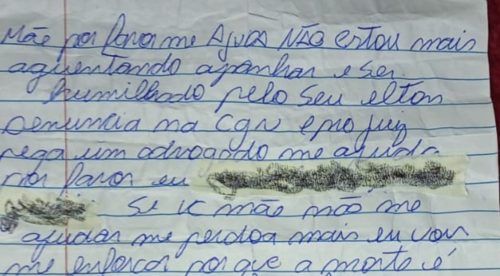 Mãe por favor me Ajuda NÃO estou mais
aguentando apanhar e ser
humilhado pelo seu elton
denuncia na cgu e pro juiz
pega um advogado me ajuda
por favor eu
Se vc mãe não me
ajudar me perdoa mais eu vou
me enforcar porque a morte é